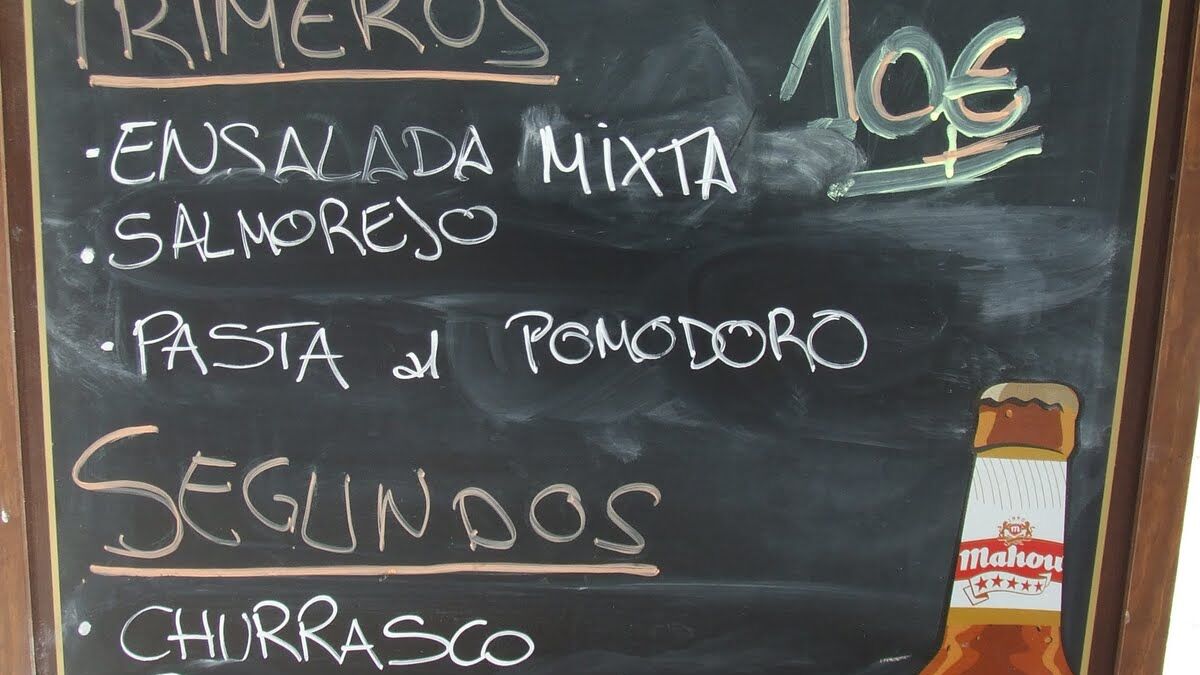 PRIMEROS
10€
· ENSALADA MIXTA
· SALMOREJO
· PASTA al POMODORO
SEGUNDOS
· CHURRASCO
Mahou